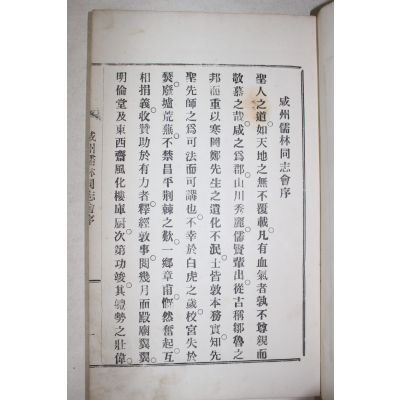 咸州儒林同志會序
聖人之道如天地之無不覆載凡有血氣者孰不尊親而
敬慕之哉咸之爲郡山川秀麗儒賢輩出從古稱鄒魯之
邦而重以寒岡鄭先生之遺化不泯士皆敦本務實知先
聖先師之爲可法而可講也不幸於白虎之歲校宮失於
燹廢墟荒蕪不禁昌平荊棘之歎一鄉章甫慨然奮起互
相捐義收贊助於有力者釋經敦事閱幾月而殿廟翼翼
明倫堂及東西齋風化樓庫厨次第功竣其軆勢之壯偉
咸州儒林同志會序
一